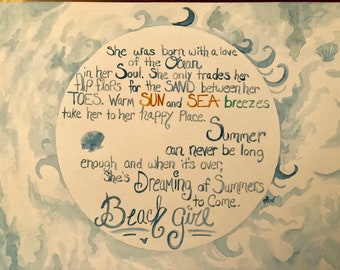 She was born with a love
of the Ocean
in her Soul. She only trades her
flip flops for the SAND between her
TOES. Warm SUN and SEA breezes
take her to her happy Place.
Summer
can never be long
enough and when it's over,
She's Dreaming of Summers
to Come.
Beach girl